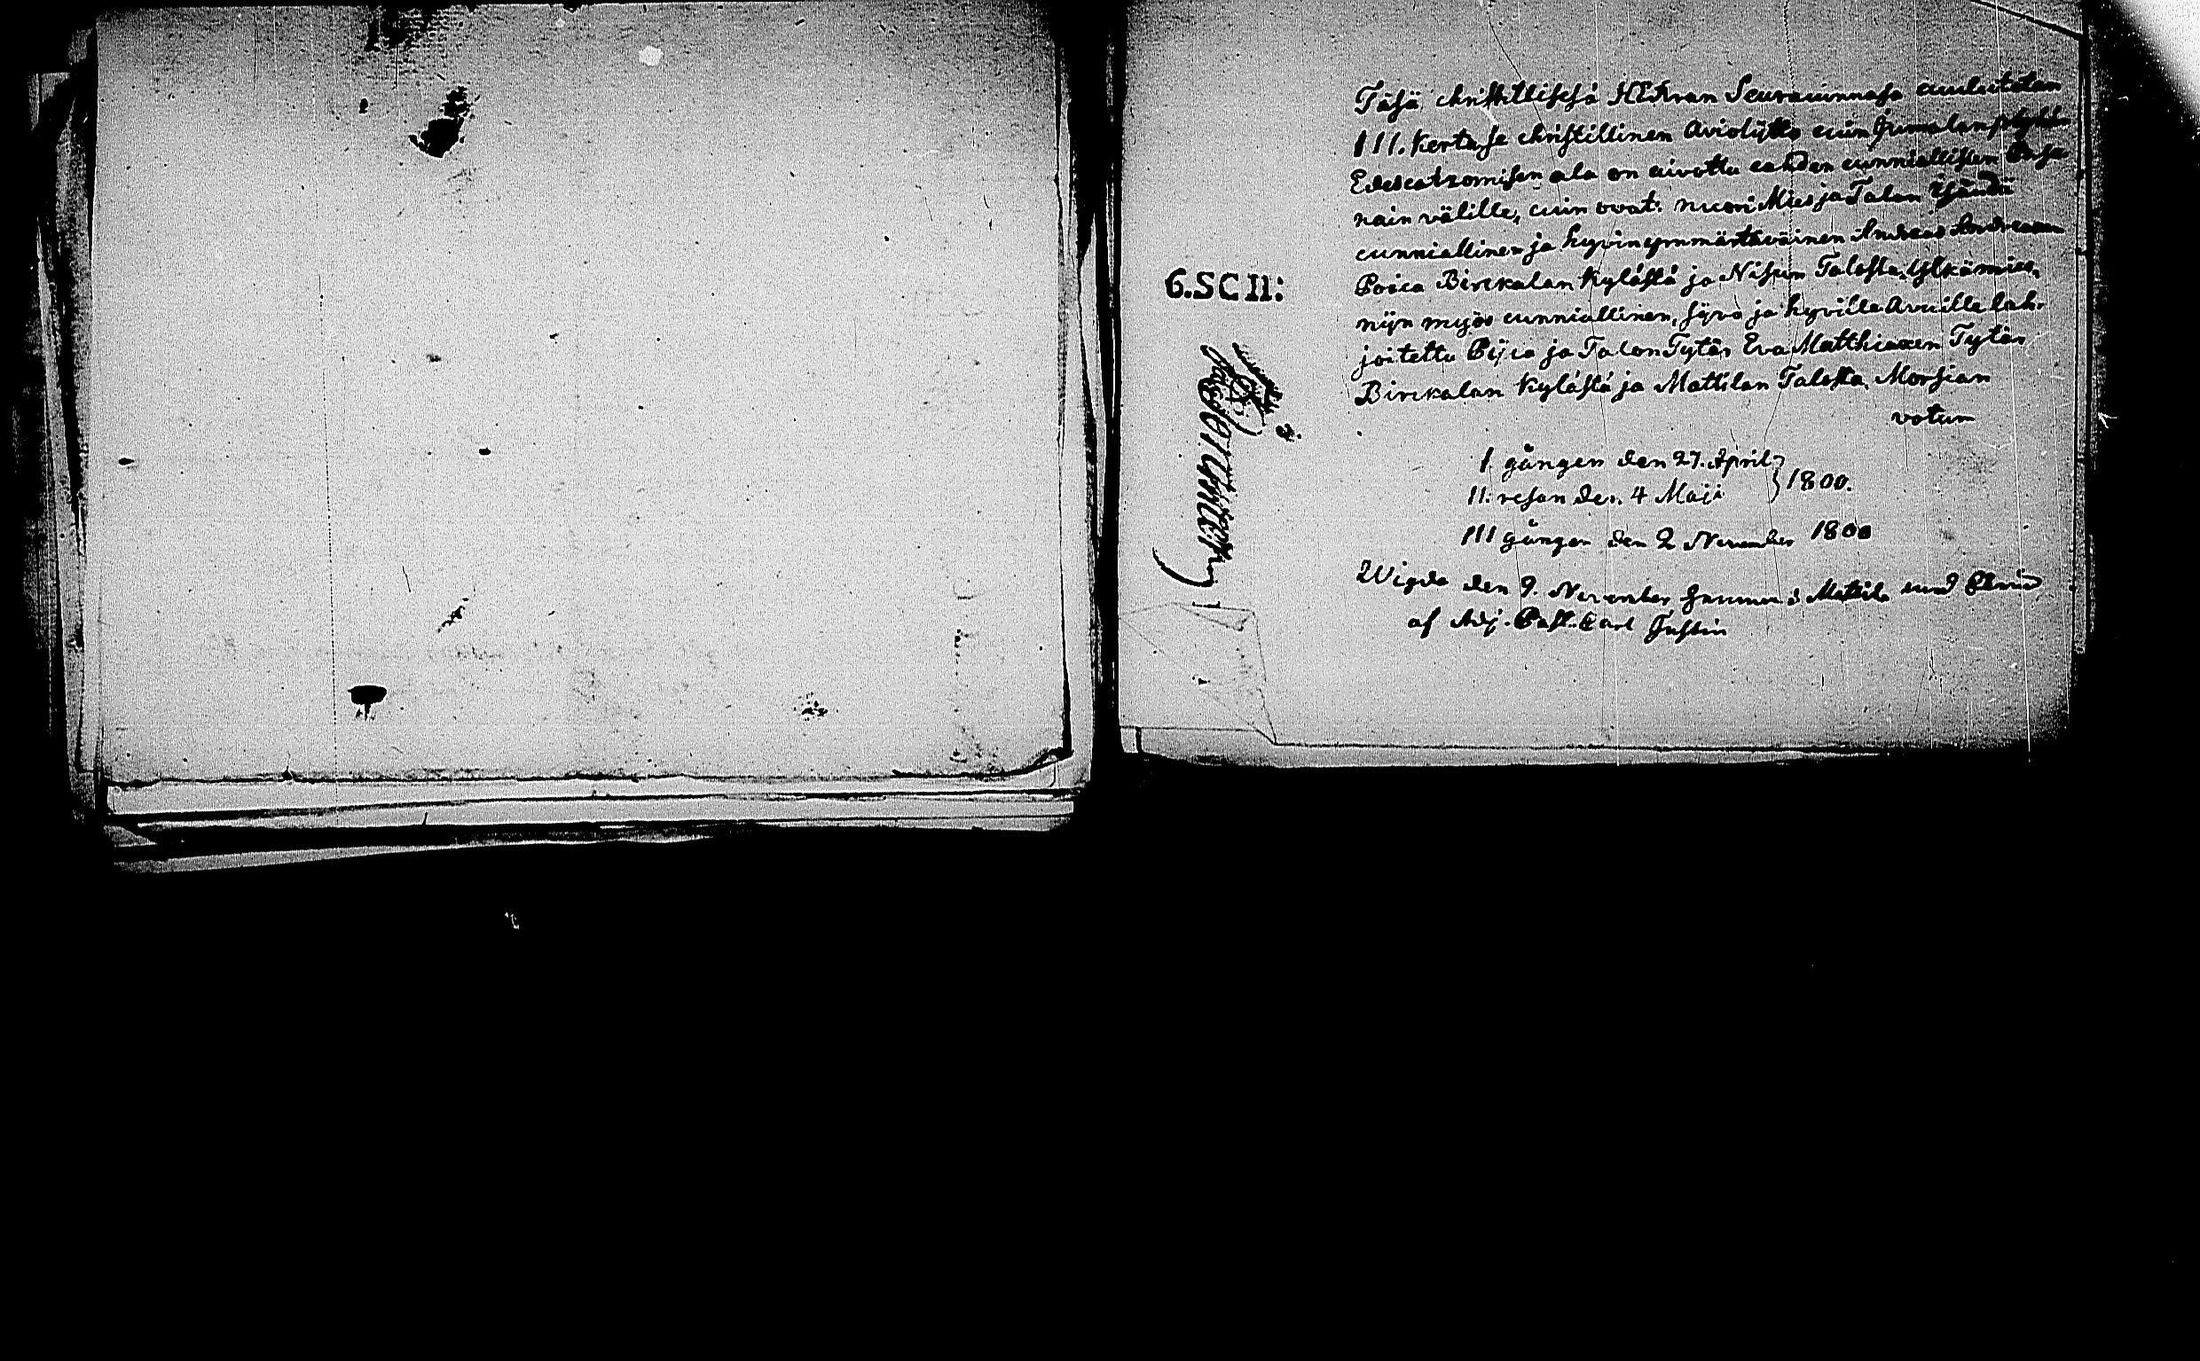 Täsä christillisesä HERran Seuracunnasa cuulutetan
III. kertase christillinen Aviokäsky cuin Jumalan pyhän
Edescatzomisen ala on aivottu cahden cunniallisen
nain välille, cuin ovat: nuori Mies ja Talon Isändä
cunniallinen ja hyvinymmärtäväinen Andreas Andreaxen
Poica Birckalan Kylästä ja Nisun Talosta, Ylkämies,
nijn myös cunniallinen, sijvo ja hyville Avuille lah-
joitettu Pijca ja Talon Tytär Eva Matthiaxen Tytär
Birckalan Kylästä ja Mattilan Talosta, Morsian
votum
6.SC II:
I gången den 27. April
II. resan den 4 Maji } 1800.
III gången den 2 November 1800
Wigde den 9. November hemma i Mattila
af Adj. Past. Carl Justin